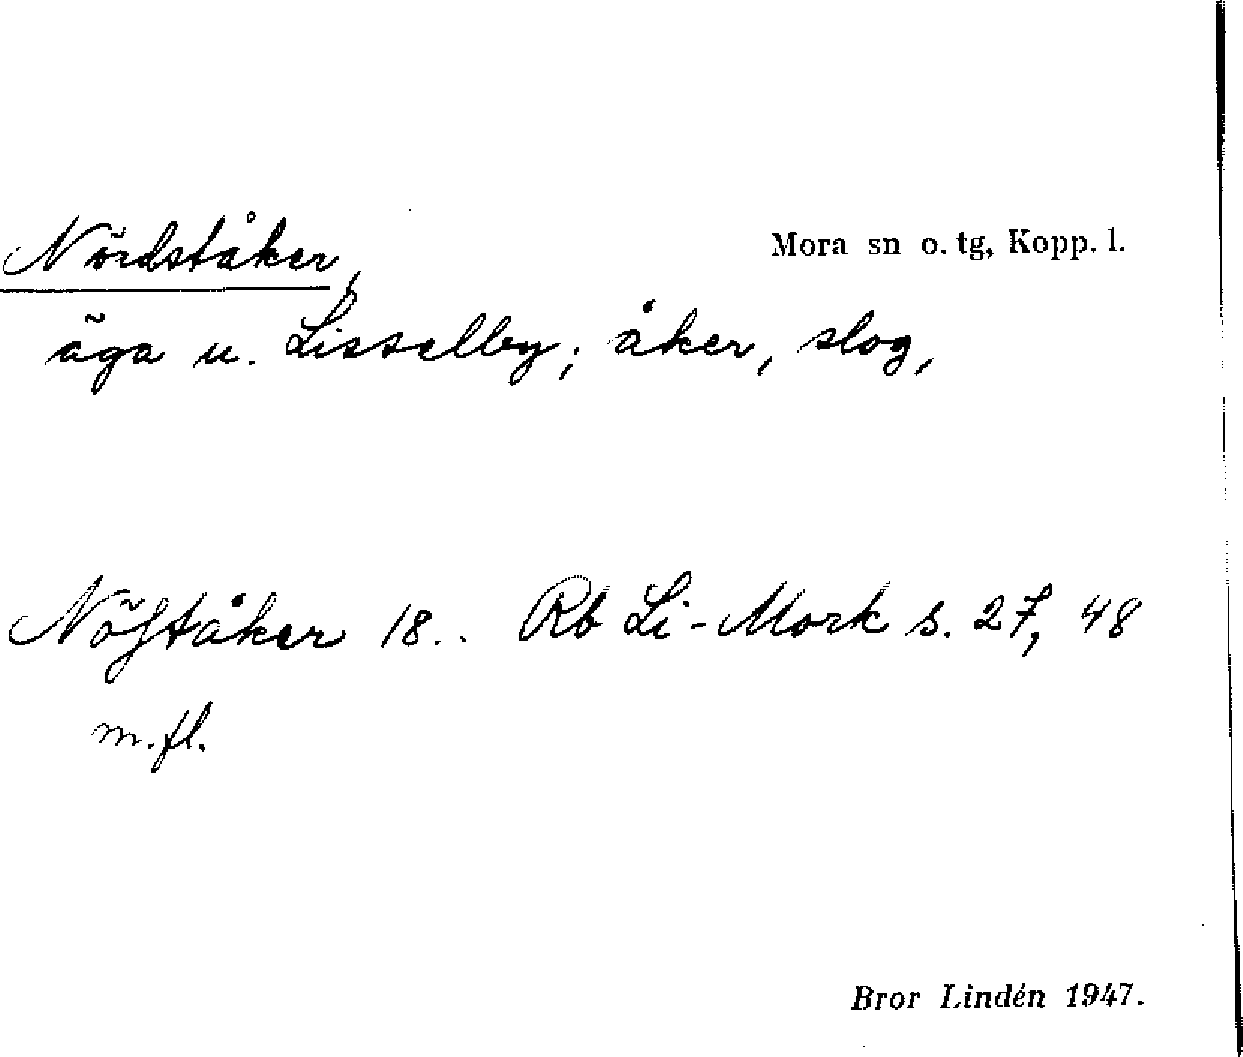 Nördståker,
Mora sn o. tg, Kopp. l.
äga u. Lisselby; åker, slog,
Nöſtåker 18.. Rb Li-Mork s. 27, 48
m.fl.
Bror Lindén 1947.